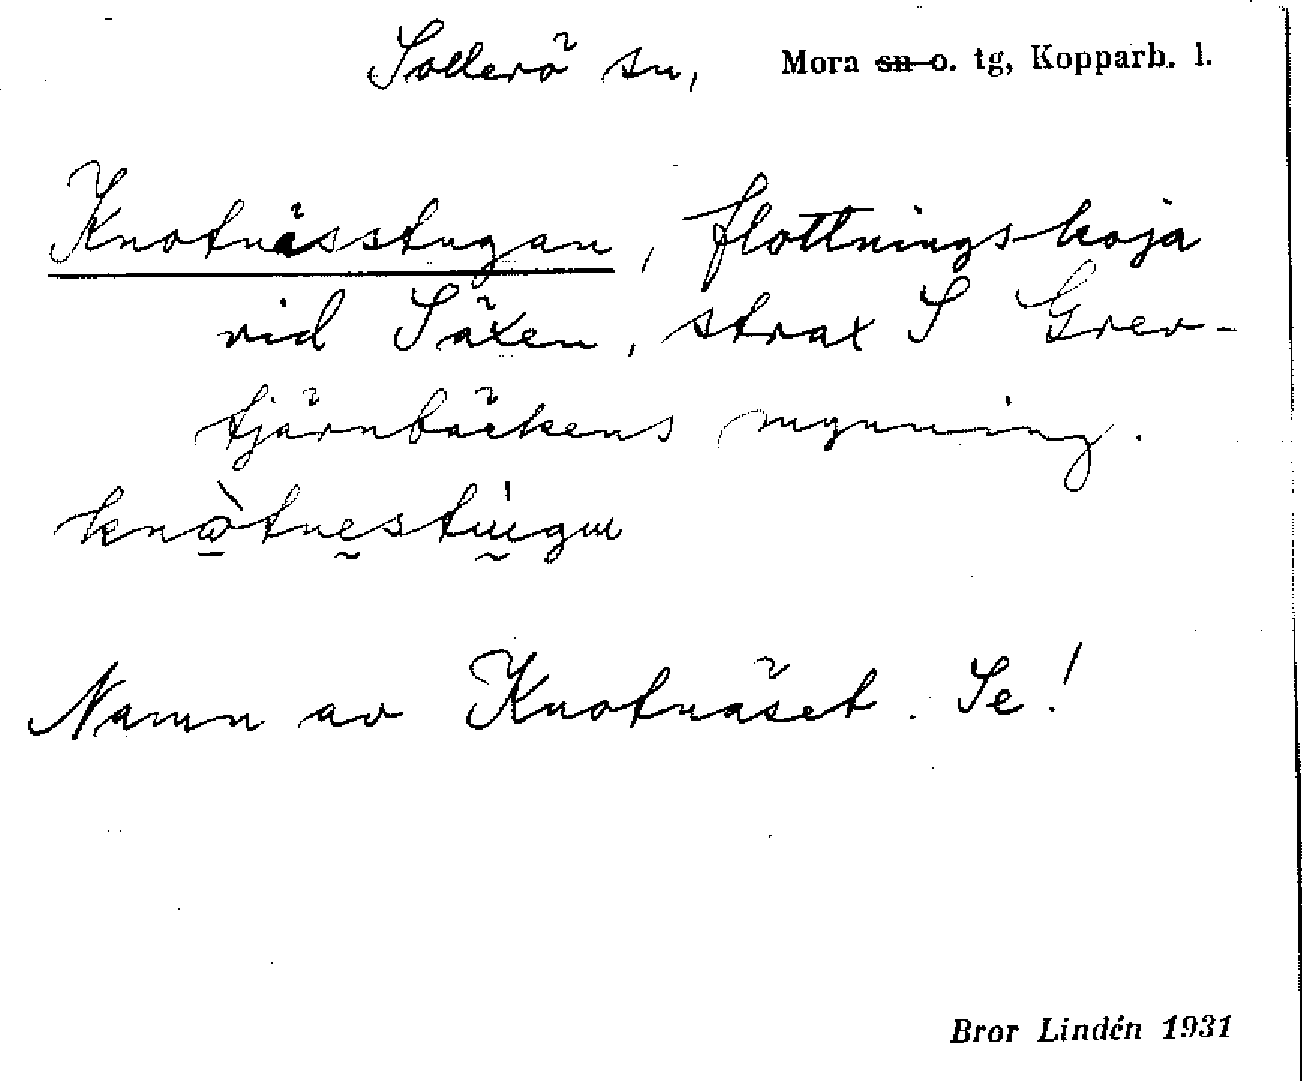 Sollerö sn, Mora sn o. tg, Kopparb. l.
Knotnässtugan, flottningskoja
vid Säxen, strax S Grev-
tjärnbäckens mynning.
Namn av Knotnäset. Se!
Bror Lindén 1931